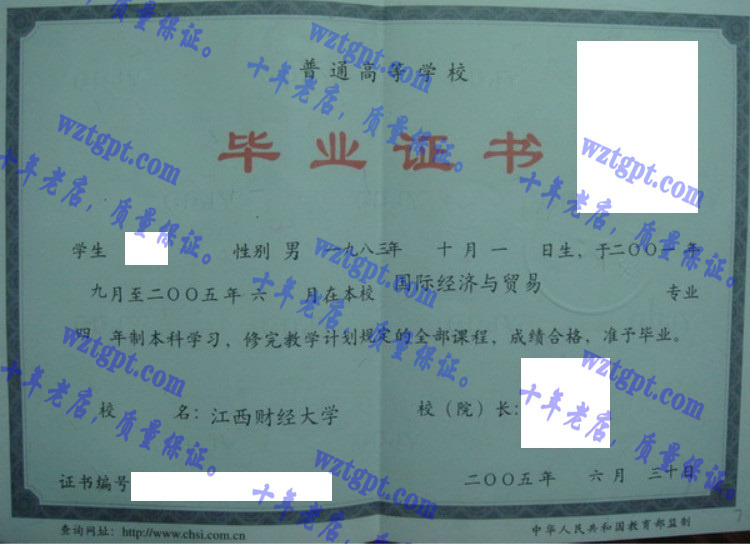 普通高等学校
毕业证书
学生 性别 男 一九八三年 十月一 日生，于二〇〇一年
九月至二〇〇五年六 月在本校 国际经济与贸易 专业
四 年制本科学习，修完教学计划规定的全部课程，成绩合格，准予毕业。
校 名：江西财经大学 校（院）长：
证书编号 二〇〇五年 六月 三十日
查询网址：http://www.chsi.com.cn 中华人民共和国教育部监制
质量保证。
wztgpt.com
十年老店，质量保证。
wztgpt.com
十年老店，质量保证。
wztgpt.com
十年老店，质量保证。
wztgpt.com
十年老店，质量保证。
wztgpt.com
十年老店，质量保证。
wztgpt.com
十年老店，质量保证。
wztgpt.com
十年老店，质量保证。
wztgpt.com
十年老店，